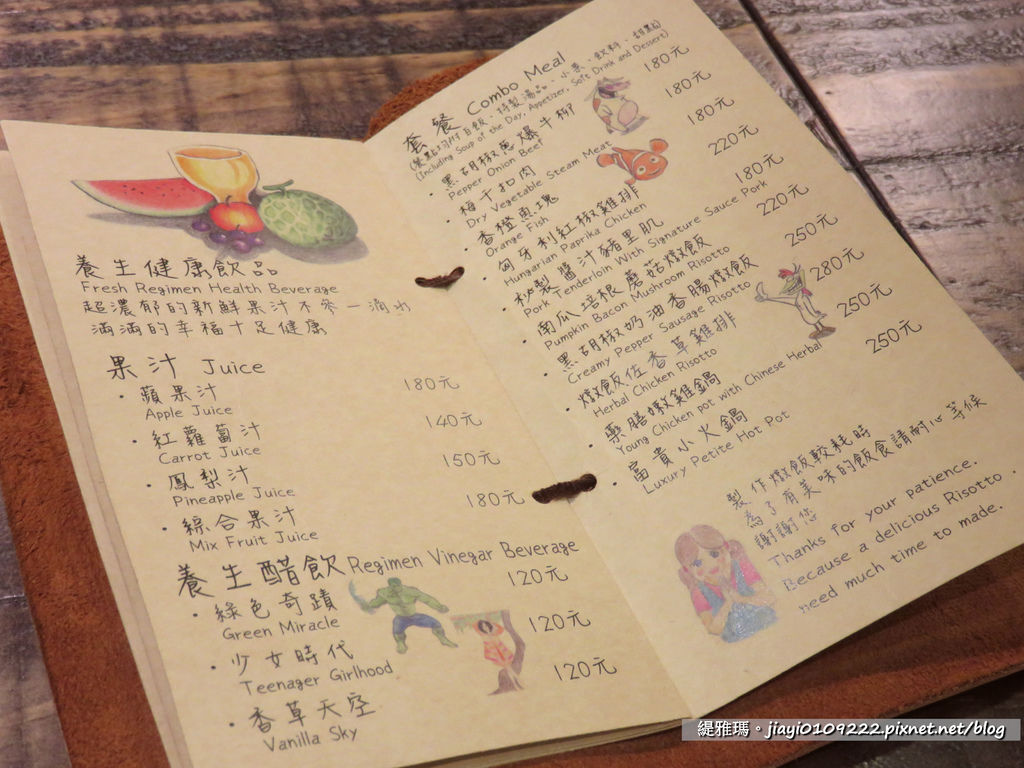 養生健康飲品
Fresh Regimen Health Beverage
超濃郁的新鮮果汁不零一滴水
滿滿的幸福十足健康
果汁 Juice
・蘋果汁 180元
Apple Juice
・紅蘿蔔汁 140元
Carrot Juice
・鳳梨汁 150元
Pineapple Juice
・綜合果汁 180元
Mix Fruit Juice
養生醋飲 Regimen Vinegar Beverage
・綠色奇蹟 120元
Green Miracle
・少女時代 120元
Teenager Girlhood
・香草天空 120元
Vanilla Sky
套餐 Combo Meal
(餐點均附白飯、特製湯品、小菜、飲料、甜點)
(Including Soup of the Day, Appetizer, Soft Drink and Dessert)
・黑胡椒蔥爆牛柳 180元
Pepper Onion Beef
・梅干扣肉 180元
Dry Vegetable Steam Meat
・香橙魚塊 180元
Orange Fish
・匈牙利紅椒雞排 220元
Hungarian Paprika Chicken
・秘製醬汁豬里肌 180元
Pork Tenderloin With Signature Sauce Pork
・南瓜培根蘑菇燉飯 220元
Pumpkin Bacon Mushroom Risotto
・黑胡椒奶油香腸燉飯 250元
Creamy Pepper Sausage Risotto
・燉飯佐香草雞排 280元
Herbal Chicken Risotto
・藥膳嫩雞鍋 250元
Young Chicken pot with Chinese Herbal
・富貴小火鍋 250元
Luxury Petite Hot Pot
製作燉飯較耗時
為了有美味的飯食請耐心等候
謝謝您
Thanks for your patience.
Because a delicious Risotto
need much time to made.
緹雅瑪。jiayi0109222.pixnet.net/blog